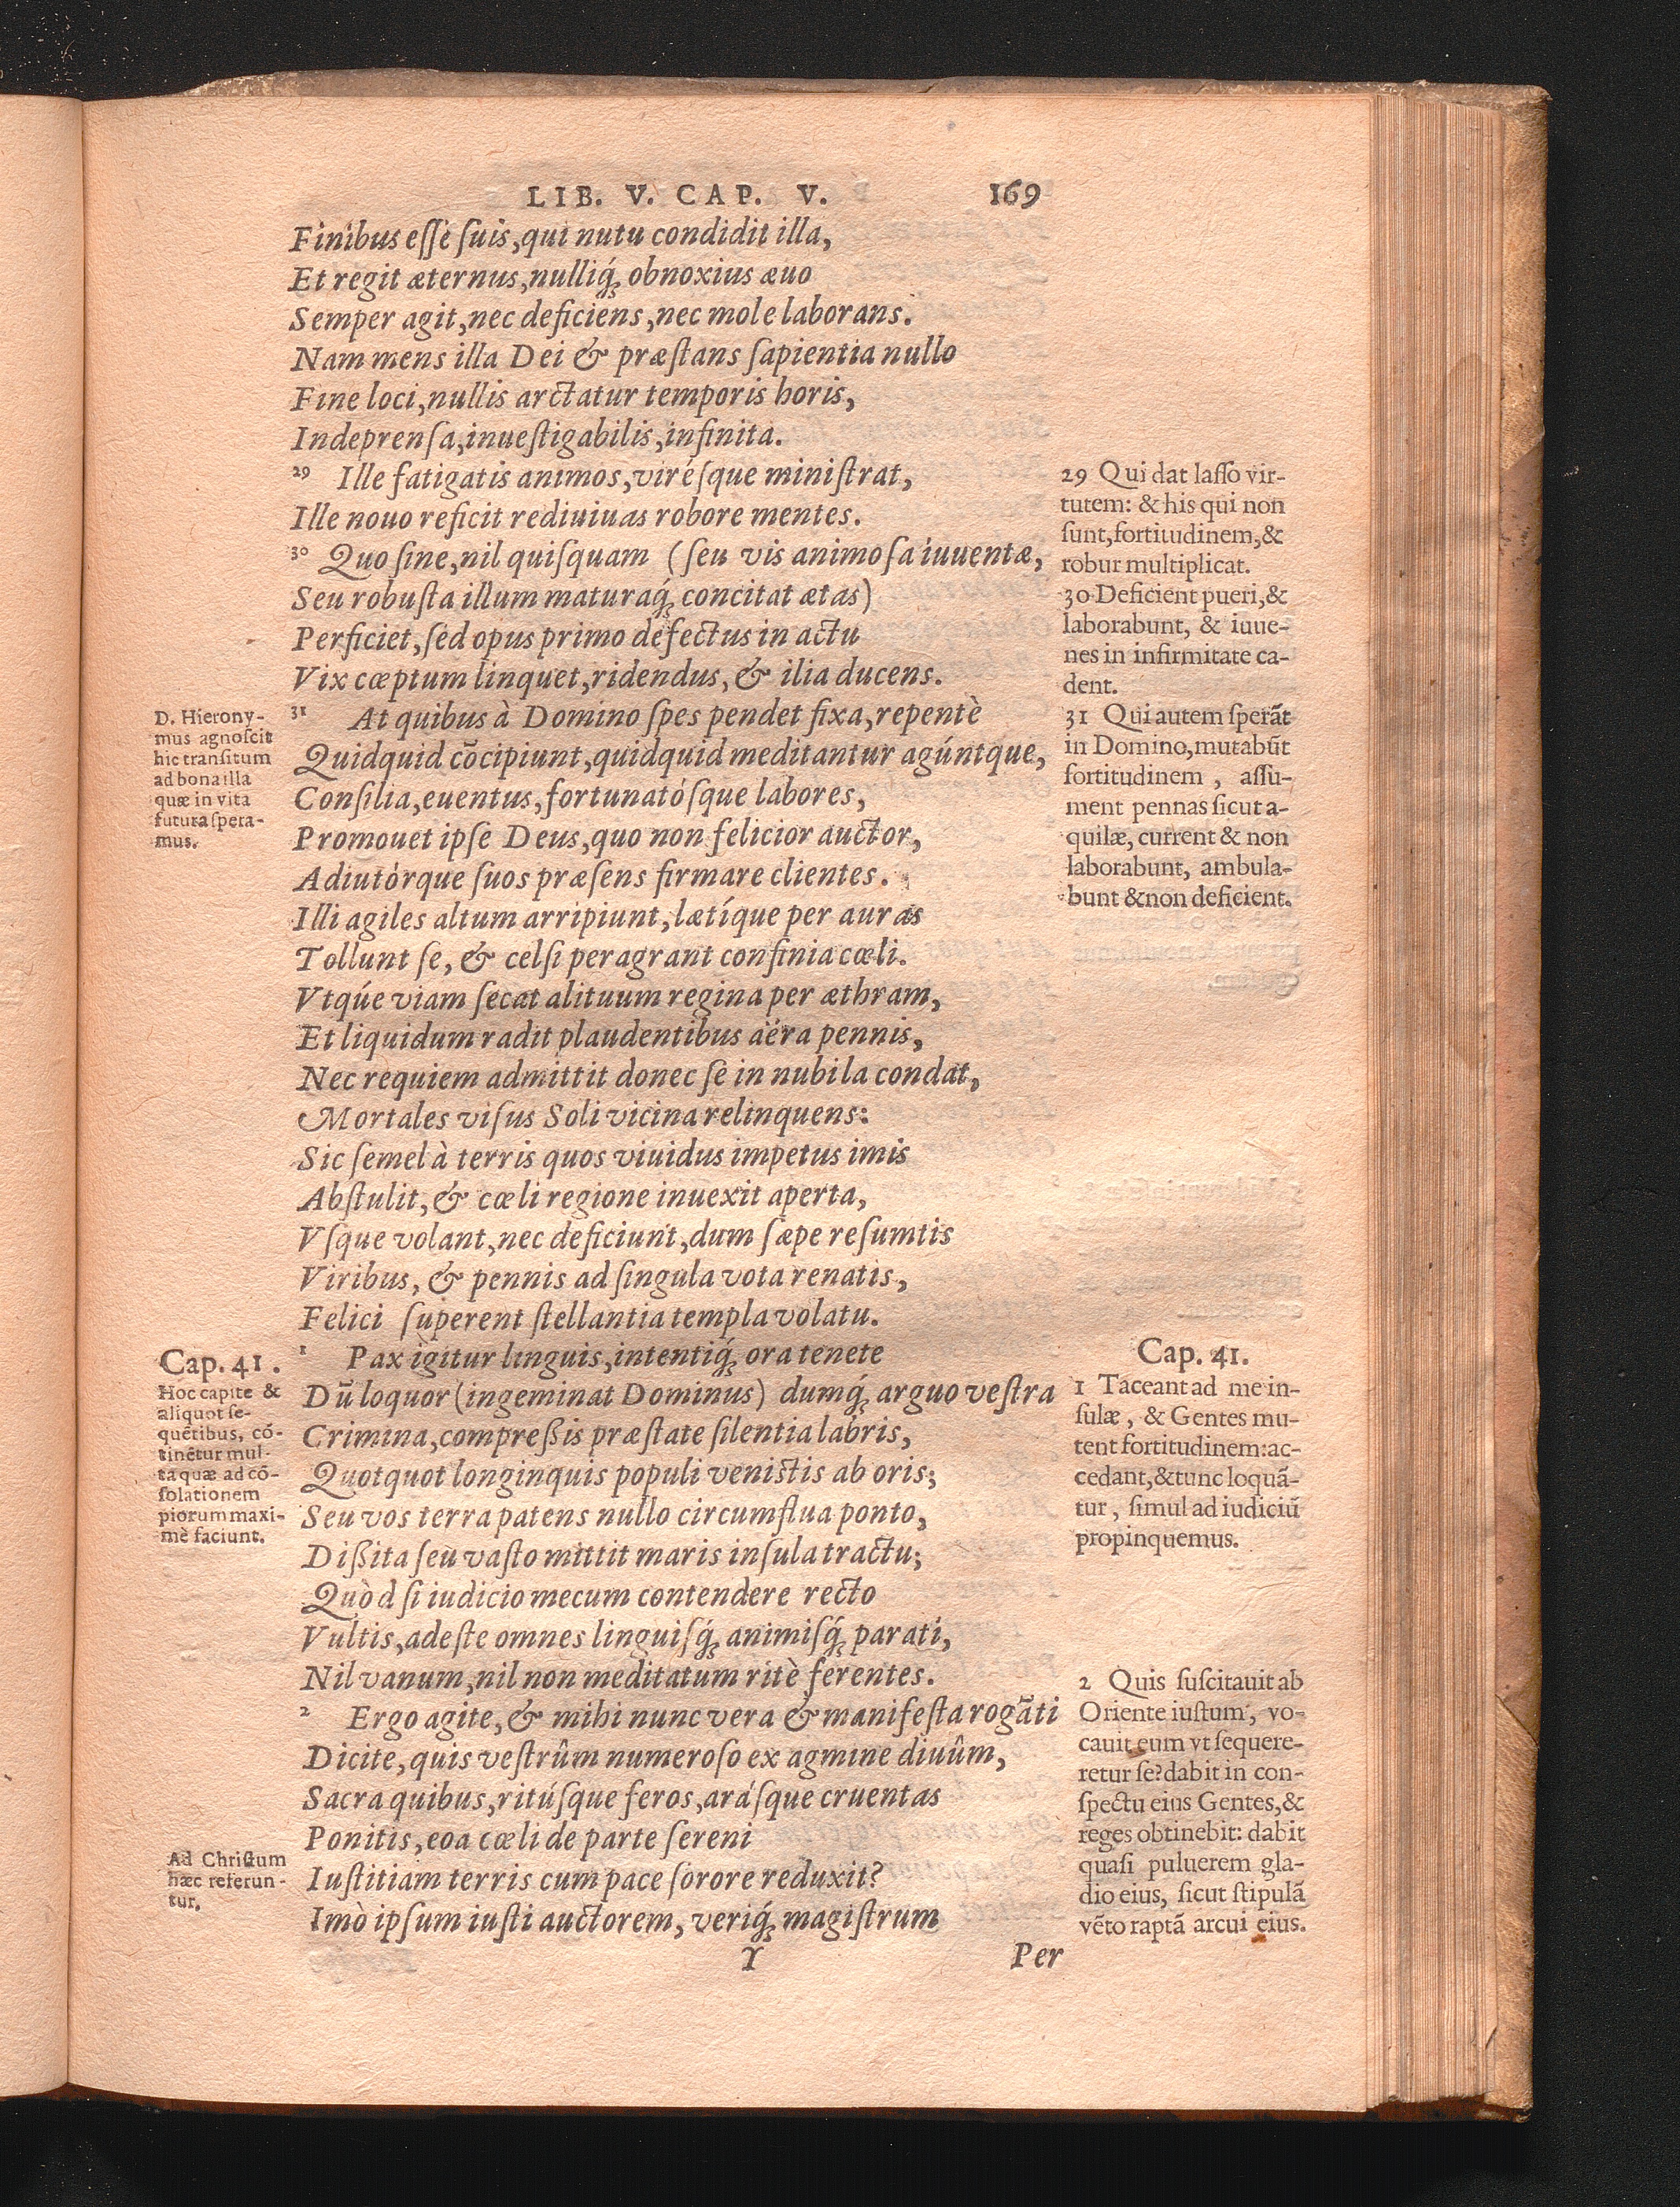 LIB. V. CAP. V. 169
Finibus eſſe ſuis, qui nutu condidit illa,
Et regit æternus, nulliq́ꝫ obnoxius æuo
Semper agit, nec deficiens, nec mole laborans.
Nam mens illa Dei & præſtans ſapientia nullo
Fine loci, nullis arctatur temporis horis,
Indeprenſa, inueſtigabilis, infinita.
29 Ille fatigatis animos, viréſque miniſtrat,
Ille nouo reficit rediuiuas robore mentes.
30 Quo ſine, nil quiſquam (ſeu vis animoſa iuuentæ,
Seu robuſta illum maturaq́ꝫ concitat ætas)
Perficiet, ſed opus primo defectus in actu
Vix cœptum linquet, ridendus, & ilia ducens.
31 At quibus à Domino ſpes pendet fixa, repentè
Quidquid cõcipiunt, quidquid meditantur agúntque,
Conſilia, euentus, fortunatóſque labores,
Promouet ipſe Deus, quo non felicior auctor,
Adiutórque ſuos præſens firmare clientes.
Illi agiles altum arripiunt, lætíque per auras
Tollunt ſe, & celſi peragrant confinia cœli.
Vtqúe viam ſecat alituum regina per æthram,
Et liquidum radit plaudentibus aëra pennis,
Nec requiem admittit donec ſe in nubila condat,
Mortales viſus Soli vicina relinquens:
Sic ſemel à terris quos viuidus impetus imis
Abſtulit, & cœli regione inuexit aperta,
Vſque volant, nec deficiunt, dum ſæpe reſumtis
Viribus, & pennis ad ſingula vota renatis,
Felici ſuperent ſtellantia templa volatu.
1 Pax igitur linguis, intentiq́ꝫ ora tenete
Dũ loquor (ingeminat Dominus) dumq́ꝫ arguo veſtra
Crimina, compreßis præſtate ſilentia labris,
Quotquot longinquis populi veniſtis ab oris;
Seu vos terra patens nullo circumflua ponto,
Dißita ſeu vaſto mittit maris inſula tractu;
Quòd ſi iudicio mecum contendere recto
Vultis, adeſte omnes linguiſq́ꝫ animiſq́ꝫ parati,
Nil vanum, nil non meditatum ritè ferentes.
2 Ergo agite, & mihi nunc vera & manifeſta rogãti
Dicite, quis veſtrûm numeroſo ex agmine diuûm,
Sacra quibus, ritúſque feros, aráſque cruentas
Ponitis, eoa cœli de parte ſereni
Iuſtitiam terris cum pace ſorore reduxit?
Imò ipſum iuſti auctorem, veriq́ꝫ magiſtrum
Y Per
D. Hierony-
mus agnoſcit
hic tranſitum
ad bona illa
quæ in vita
futura ſpera-
mus.
Cap. 41.
Hoc capite &
aliquot ſe-
quẽtibus, cõ-
tinẽtur mul-
ta quæ ad cõ-
ſolationem
piorum maxi-
mè faciunt.
Ad Chriſtum
hæc referun-
tur.
29 Qui dat laſſo vir-
tutem: & his qui non
ſunt, fortitudinem, &
robur multiplicat.
30 Deficient pueri, &
laborabunt, & iuue-
nes in infirmitate ca-
dent.
31 Qui autem ſperãt
in Domino, mutabũt
fortitudinem, aſſu-
ment pennas ſicut a-
quilæ, current & non
laborabunt, ambula-
bunt & non deficient.
Cap. 41.
1 Taceant ad me in-
ſulæ, & Gentes mu-
tent fortitudinem: ac-
cedant, & tunc loquã-
tur, ſimul ad iudiciũ
propinquemus.
2 Quis ſuſcitauit ab
Oriente iuſtum, vo-
cauit eum vt ſequere-
retur ſe? dabit in con-
ſpectu eius Gentes, &
reges obtinebit: dabit
quaſi puluerem gla-
dio eius, ſicut ſtipulã
vẽto raptã arcui eius.